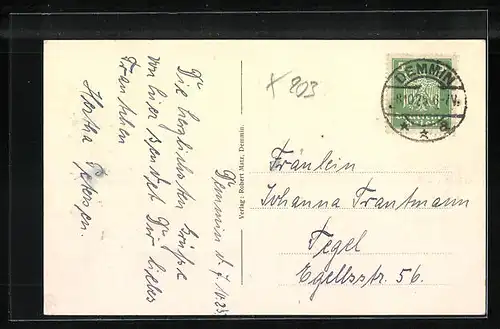 Demmin d. 7.10.25.
Die herzlichsten Grüße
von hier sendet Dir liebes
Fräulein
Hertha Petersen.
Verlag: Robert Matz, Demmin.
× 803
DEMMIN
* * a
Fräulein
Johanna Trautmann
Tegel
Egellsstr. 56.